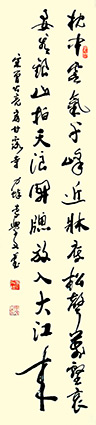 枕中雲氣千峰近牀底松聲萬壑哀
要看銀山拍天浪開窗放入大江來
宋曾公亮宿甘露寺